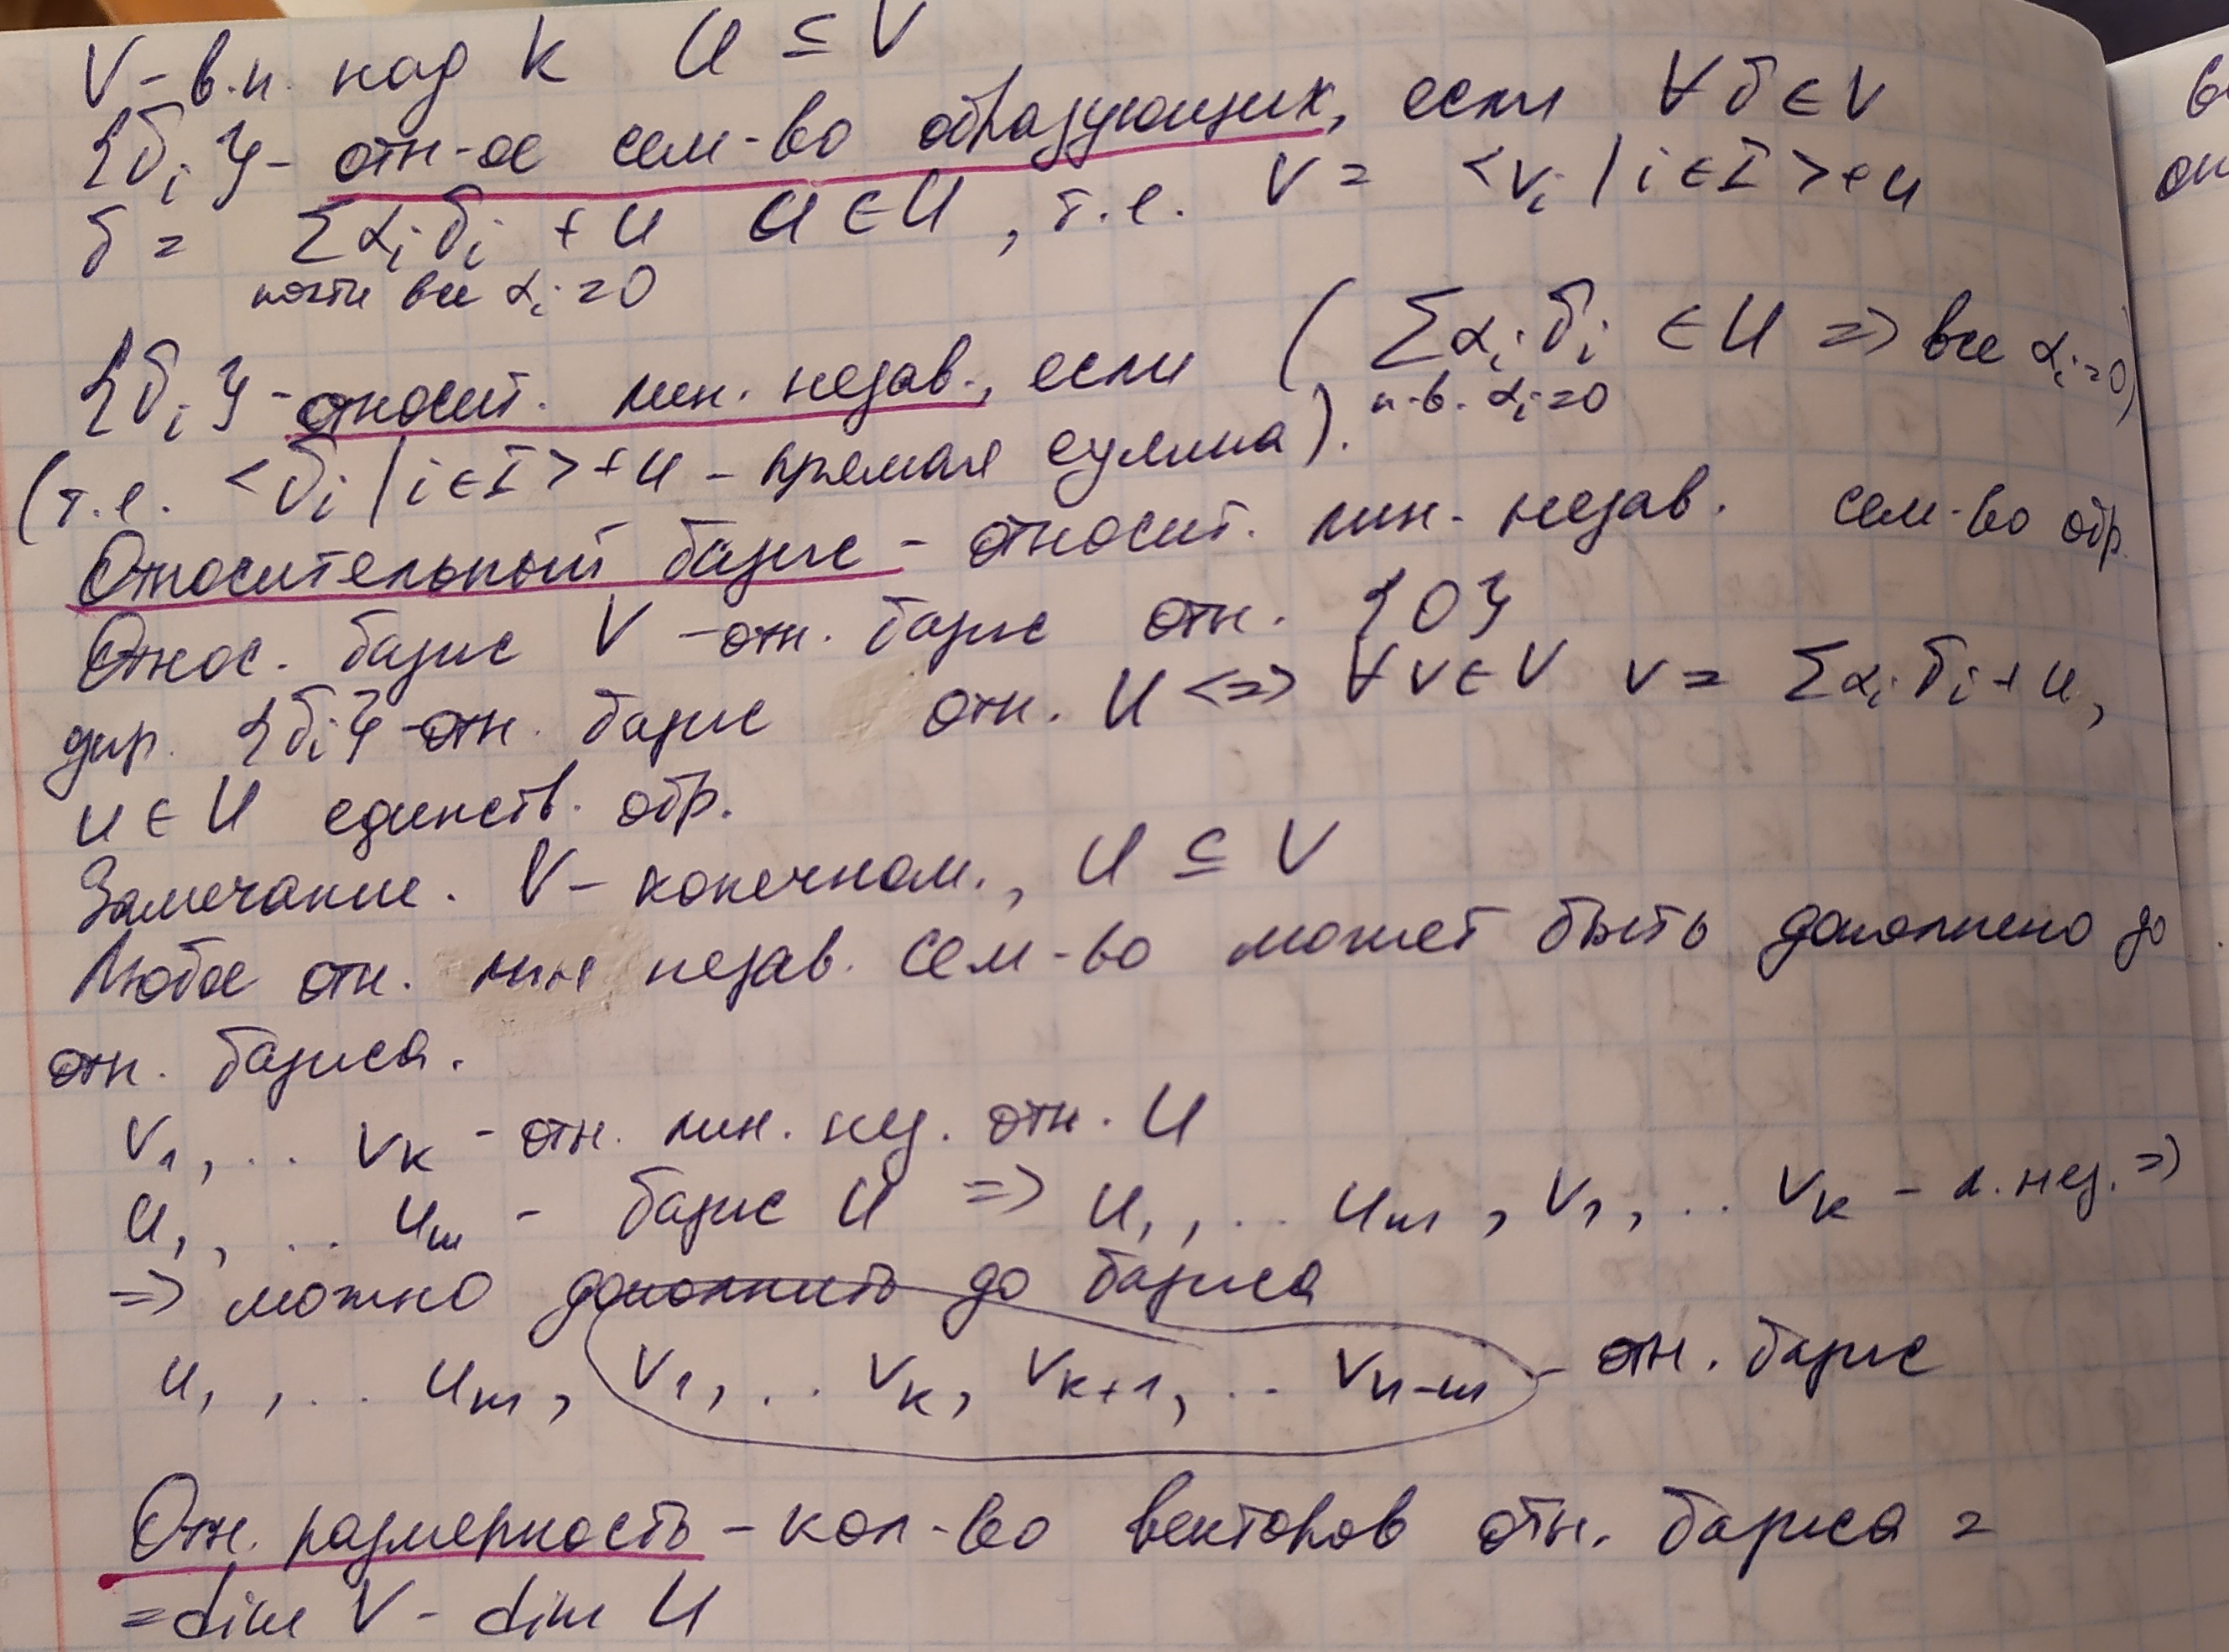 V - в.п. над K U ⊆ V
{v̄ᵢ} - отн-ое сем-во образующих, если ∀ v̄ ∈ V
v̄ = Σαᵢv̄ᵢ + u u ∈ U, т.е. V = <vᵢ | i ∈ I> + U
почти все αᵢ = 0
{v̄ᵢ} - относит. лин. незав., если (Σαᵢv̄ᵢ ∈ U => все αᵢ = 0)
п.в. αᵢ = 0
(т.е. <v̄ᵢ | i ∈ I> + U - прямая сумма).
Относительный базис - относит. лин. незав. сем-во обр.
Относ. базис V - отн. базис отн. {0}
упр. {v̄ᵢ} - отн. базис отн. U <=> ∀ v ∈ V v = Σαᵢv̄ᵢ + u,
u ∈ U единств. обр.
Замечание. V - конечном., U ⊆ V
Любое отн. лин незав. сем-во может быть дополнено до
отн. базиса.
v₁, .. vₖ - отн. лин. нез. отн. U
u₁, .. uₘ - базис U => u₁, .. uₘ, v₁, .. vₖ - л. нез. =>
=> можно дополнить до базиса
u₁, .. uₘ, v₁, .. vₖ, vₖ₊₁, .. vₙ₋ₘ - отн. базис
Отн. размерность - кол-во векторов отн. базиса =
= dim V - dim U